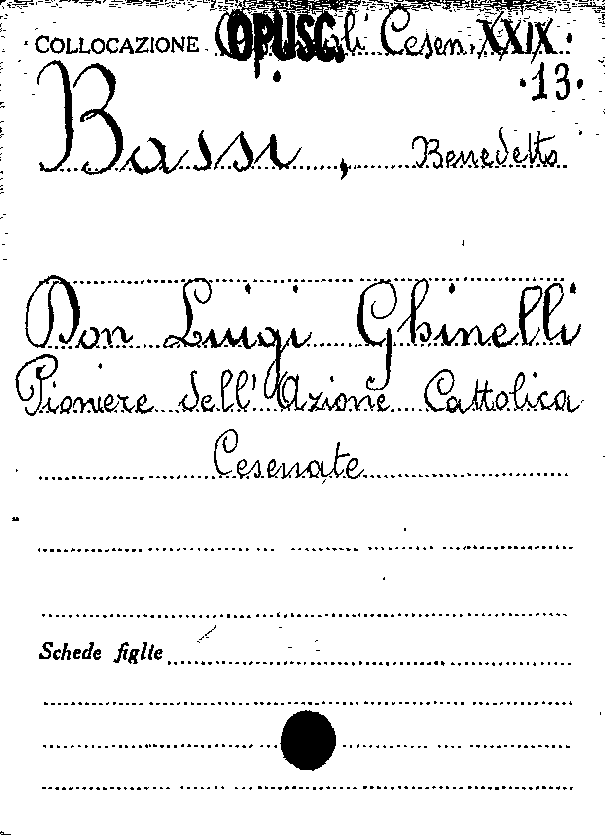 COLLOCAZIONE OPUSC. Cesen. XXIX.
.13.
Bassi, Benedetto
Don Luigi Ghinelli
Pioniere dell'Azione Cattolica
Cesenate
Schede figlie